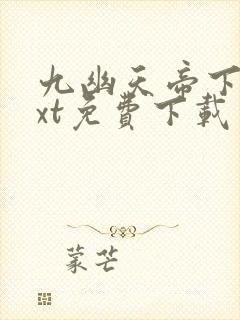 九幽天帝下
xt免費下載
蒙芒